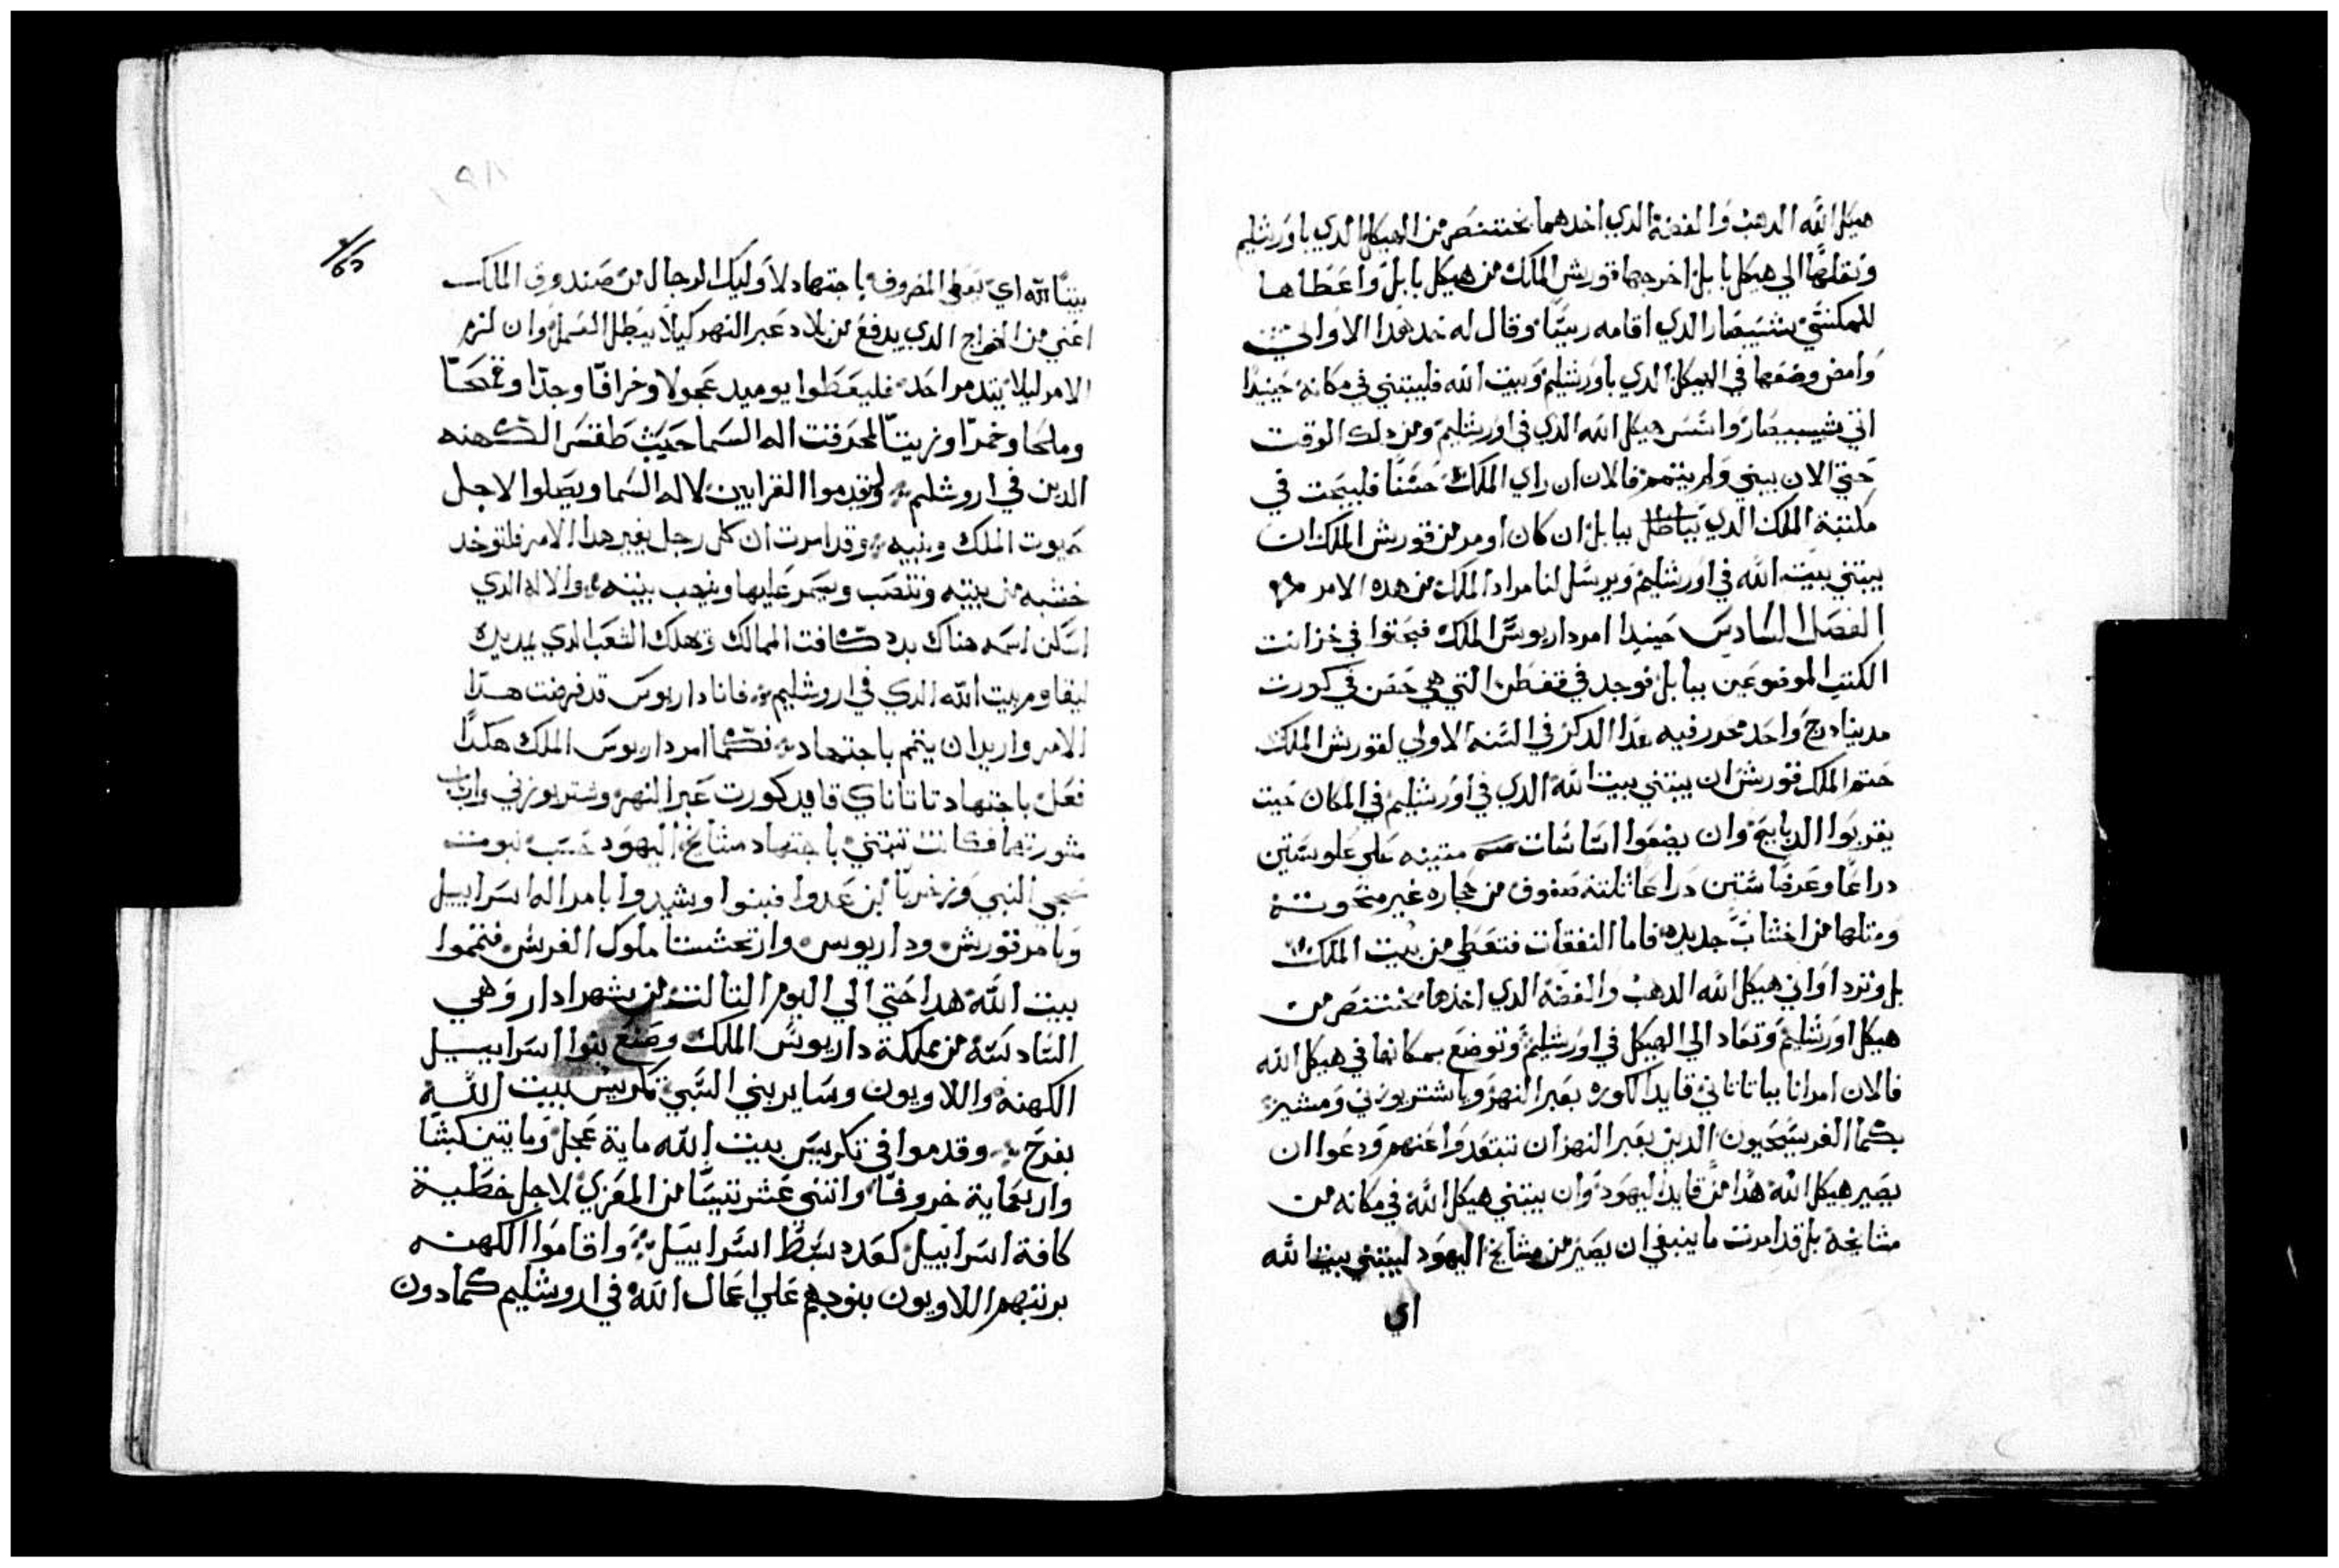 هيكل الله الدهب والفضة الدي اخدهما بختنصر من الهيكل الدي باورشليم
ونقلها الي هيكل بابل اخرجها قورش الملك من هيكل بابل واعطاها
للمكنتي شيبصار الدي اقامه رييسًا وقال له خد هدا الاواني
وامض وضعها في الهيكل الدي باورشليم وبيت الله فليبتني في مكانه حينيدًا
اتي شيبيصار واسس هيكل الله الدي في اورشليم ومن دلك الوقت
حتي الان يبني ولم يتمم فالان ان راي الملك حسنًا فليبحت في
مكتبة الملك الدي بباطل ببابل ان كان اومر من قورش الملك ان
يبتني بيت الله في اورشليم ويرسل لنا مراد الملك من هده الامر
الفصل السادس حينيدا امر داريوس الملك فبحتوا في خزانت
الكتب الموضوعين ببابل فوجد في قفطن التي هي حصن في كورت
مدينا درج واحد محرر فيه هدا الدكر في السنه الاولي لقورش الملك
حتم الملك قورش ان يبتني بيت الله الدي في اورشليم في المكان حيت
يقربوا الدبايح وان يضعوا اساسات متينه علي علو ستين
دراعًا وعرضًا ستين دراعًا ثلتة صفوف من حجاره غير منحوتة
ومتلها من اخشاب جديده فاما النفقات فتعطي من بيت الملك
بل وترد اواني هيكل الله الدهب والفضة الدي اخدها بختنصر من
هيكل اورشليم وتعاد الي الهيكل في اورشليم وتوضع بمكانها في هيكل الله
فالان امر انا بيا تاتاني قايد الكوره بعبر النهر ويا شتربوزني ومشيرة
بكما الفرسحيون الدين بعبر النهر ان تبتعدوا عنهم ودعوا ان
يصير هيكل الله هدا من قايد اليهود وان يبتني هيكل الله في مكانه من
مشايخة بل قد امرت ما ينبغي ان يصير من مشايخ اليهود ليبتني بيت الله
اي
بيتًا لله اي تعطي المصروف باجتهاد لاوليك الرجال من صندوق الملك
اعني من الخراج الدي يدفع من بلاد عبر النهر كيلا يبطل العمل وان لزم
الامر ليلا يتدمر احد فليعطوا يوميد عجولا وخرافًا وجدًا وقمحًا
وملحا وخمرًا وزيتًا لمحرقت اله السما حيث طقس الكهنه
الدين في اروشليم وليقدموا القرابين لاله السما ويصلوا لاجل
حيوت الملك وبنيه وقد امرت ان كل رجل يغير هدا الامر فلتوخد
خشبه من بيته وتنصب ويسمر عليها وينهب بيته والاله الدي
اسكن اسمه هناك يبدد كافت الممالك ويهلك الشعب الدي يمد يده
ليقاوم بيت الله الدي في اروشليم فانا داريوس قد فرضت هدا
الامر واريد ان يتم باجتهاد فكما امر داريوس الملك هكدًا
فعل باجتهاد تاتاناي قايد كورت عبر النهر وشتربوزني وارباب
مشورتهما فكانت تبتني باجتهاد مشايخ اليهود حسب نبوت
حجي النبي وزخريا ابن عدوا فبنوا وشيدوا بامر اله اسراييل
وبامر قورش وداريوس وارتحشستا ملوك الفرس فتمموا
بيت الله هدا حتي الي اليوم التالت من شهر ادار وهي
السادسة من مملكة داريوس الملك وصنع بنوا اسراييل
الكهنة واللاويون وساير بني السبي تكريس بيت الله
بفرح وقدموا في تكريس بيت الله ماية عجل ومايتين كبشًا
واربعماية خروفًا واتني عشر تيسًا من المعزي لاجل خطية
كافة اسراييل كعدد سبط اسراييل واقاموا الكهنه
برتبهم واللاويون بنوبهم علي اعمال الله في اروشليم كما دون